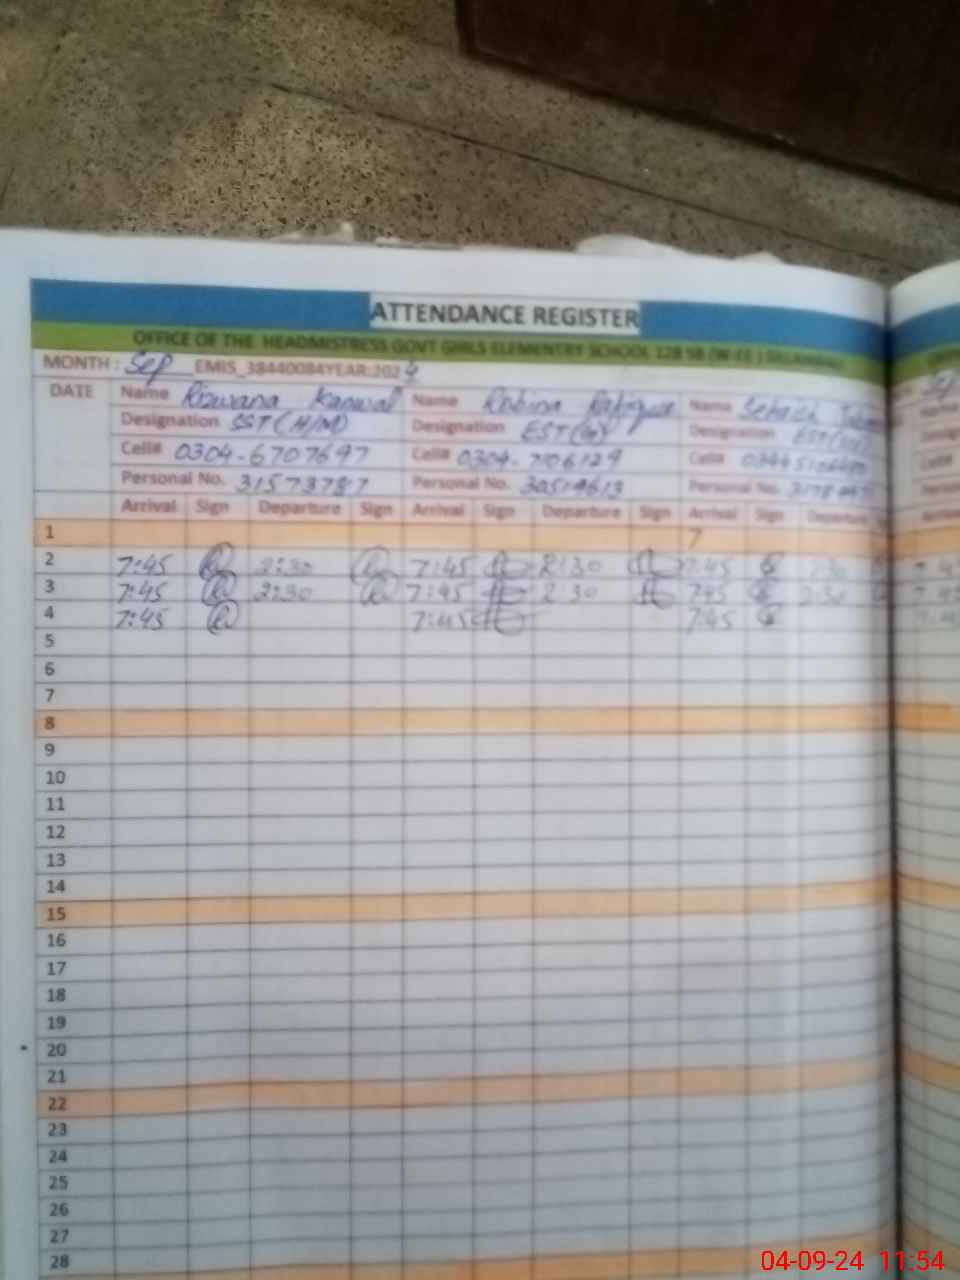 ATTENDANCE REGISTER
OFFICE OF THE HEADMISTRESS GOVT GIRLS ELEMENTRY SCHOOL 128 SB (W-EE)
MONTH : Sep EMIS_38440084YEAR:2024
DATE Name Rizwana Kanwal Name Robina Rafique Name
Designation SST (H/M) Designation EST(G) Designation
Cell# 0304-6707697 Cell# 0304-7106129 Cell#
Personal No. 31573787 Personal No. 30514613 Personal No.
Arrival Sign Departure Sign Arrival Sign Departure Sign Arrival Sign Departure
1 7
2 7:45 2:30 7:45 2:30 7:45
3 7:45 2:30 7:45 2 30 7:45 2:30
4 7:45 7:45 7:45
5
6
7
8
9
10
11
12
13
14
15
16
17
18
19
20
21
22
23
24
25
26
27
28
04-09-24 11:54